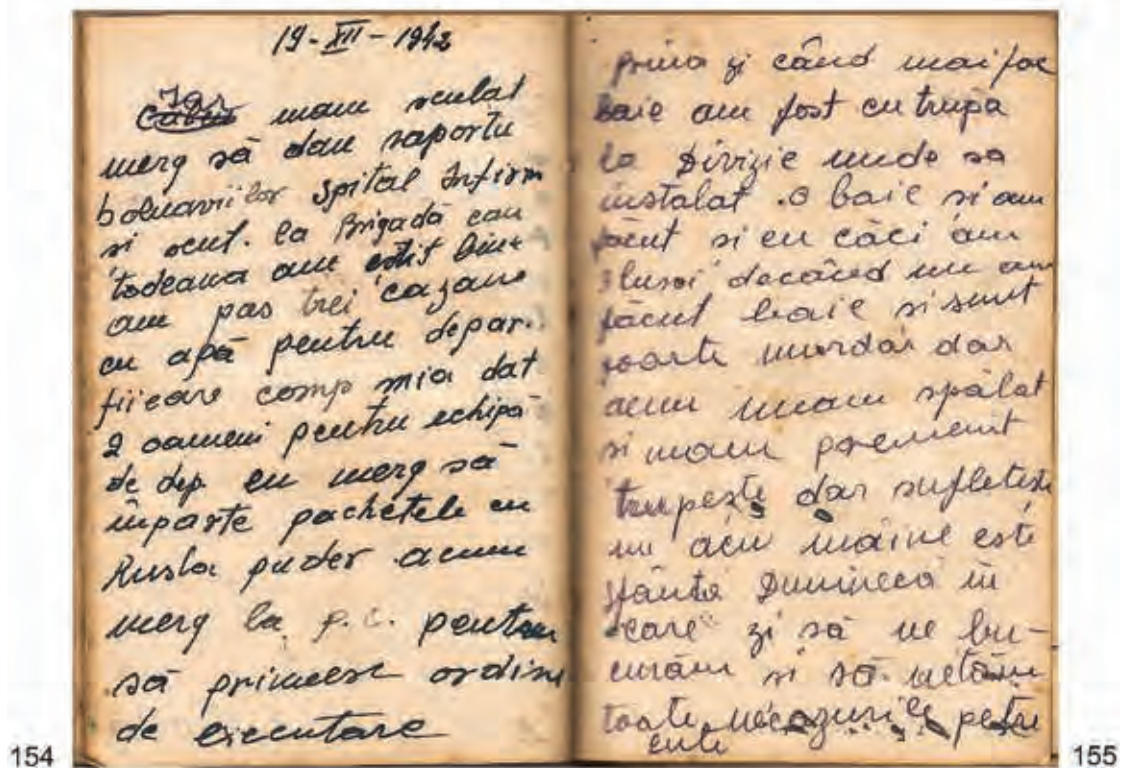 19-XII-1942
Iar
mam sculat
merg să dau raportu
bolnaviilor Spital Infirm
si scut. la Brigadă cau
todeauna am
am pas trei cazane
cu apă pentru depar.
fiicare comp mia dat
2 oameni pentru echipă
de dep eu merg să
înparte pachetele cu
Rusla puder acum
merg la p.c. pentru
să primesc ordinu
de executare
154
prima zi când mai fac
baie am fost cu trupa
la Divizie unde sa
instalat o baie si am
făcut si eu căci am
decând nu am
făcut baie si sunt
foarte murdar dar
acum mam spălat
si mam premenit
trupește dar sufletește
nu acu maine este
sfânta Dumineca in
care zi să ne bu-
curăm si să uităm
toate necazurile petre
cute
155